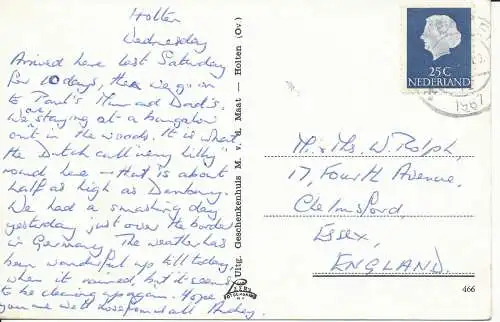 Holten
Wednesday
Arrived here last Saturday
for 10 days, then we go on
to Paul's Mum and Dad's.
We are staying at a bungalow
out in the woods. It is what
the Dutch call 'very hilly'
round here – that is about
half as high as Danbury.
We had a smashing day
yesterday just over the border
in Germany. The weather has
been wonderful up till today,
when it rained, but it seems
to be clearing up again. Hope
you are well. Love from us all Audrey.
Uitg. Geschenkenhuis M. v. d. Maat — Holten (Ov)
25 C
NEDERLAND
Mr. & Mrs. W. Rolph,
17, Fourth Avenue,
Chelmsford,
Essex,
ENGLAND.
466